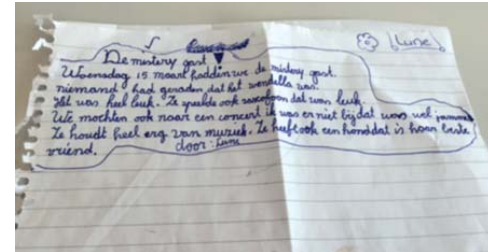 Lune
De mistery gast
Woensdag 15 maart hadden we de mistery gast.
niemand had geraden dat het wendella was.
Het was heel leuk. Ze speelde ook saxofoon dat was leuk.
We mochten ook naar een concert ik was er niet bij dat was wel jammer
Ze houdt heel erg van muziek. Ze heeft ook een hond dat is haar beste
vriend. door: Lune